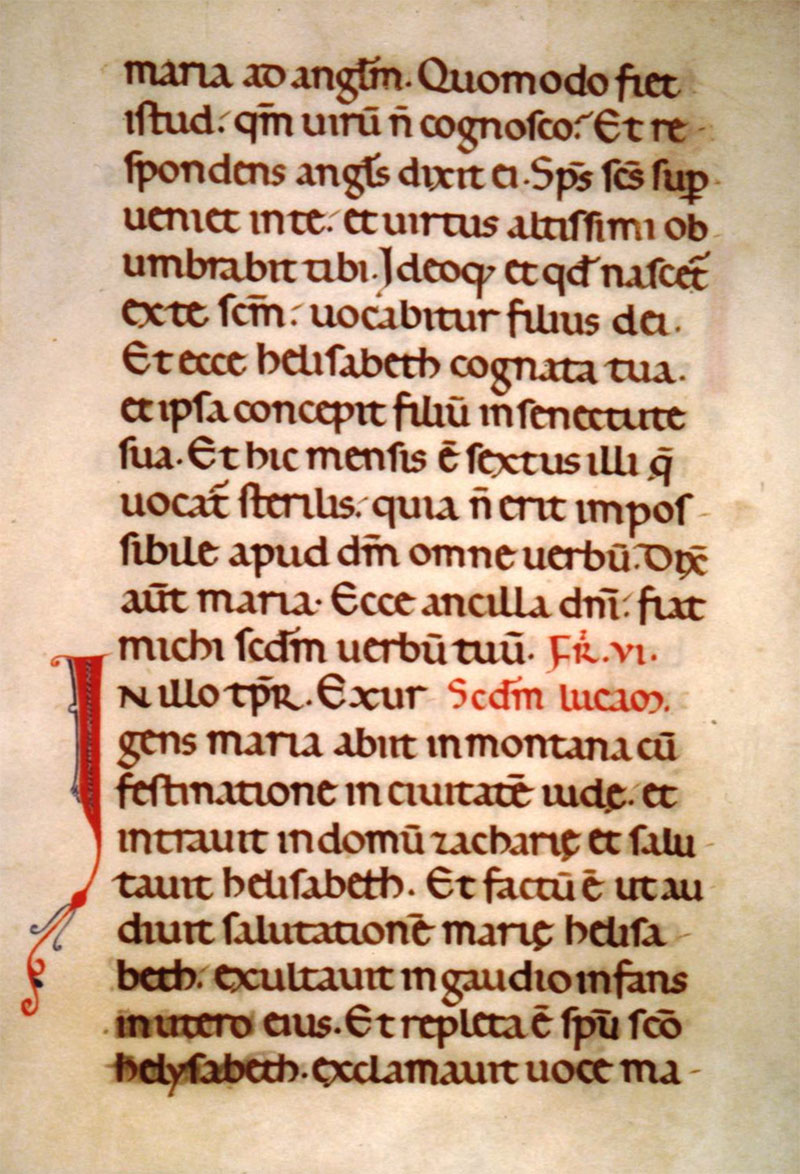 maria ad angl̃m. Quomodo fiet
istud. qm̃ uirũ ñ cognosco? Et re-
spondens angl̃s dixit ei. Sps̃ sc̃s sup̱
ueniet in te. et uirtus altissimi ob-
umbrabit tibi. Ideoqꝫ et qđ nascet̃
ex te scm̃. uocabitur filius dei.
Et ecce helisabeth cognata tua.
et ipsa concepit filiũ in senectute
sua. Et hic mensis ẽ sextus illi q̃
uocat̃ sterilis. quia ñ erit impos-
sibile apud dm̃ omne uerbũ. Dix̃
aũt maria. Ecce ancilla dnĩ. fiat
michi scđm uerbũ tuũ. Fr̃. vi.
IN illo tp̃r. Exur Scđm lucam.
gens maria abiit in montana cũ
festinatione in ciuitatẽ iudę. et
intrauit in domũ zacharię et salu-
tauit helisabeth. Et factũ ẽ ut au-
diuit salutationẽ marię helisa-
beth. exultauit in gaudio infans
in utero eius. Et repleta ẽ spũ scõ
helysabeth. exclamauit uoce ma-